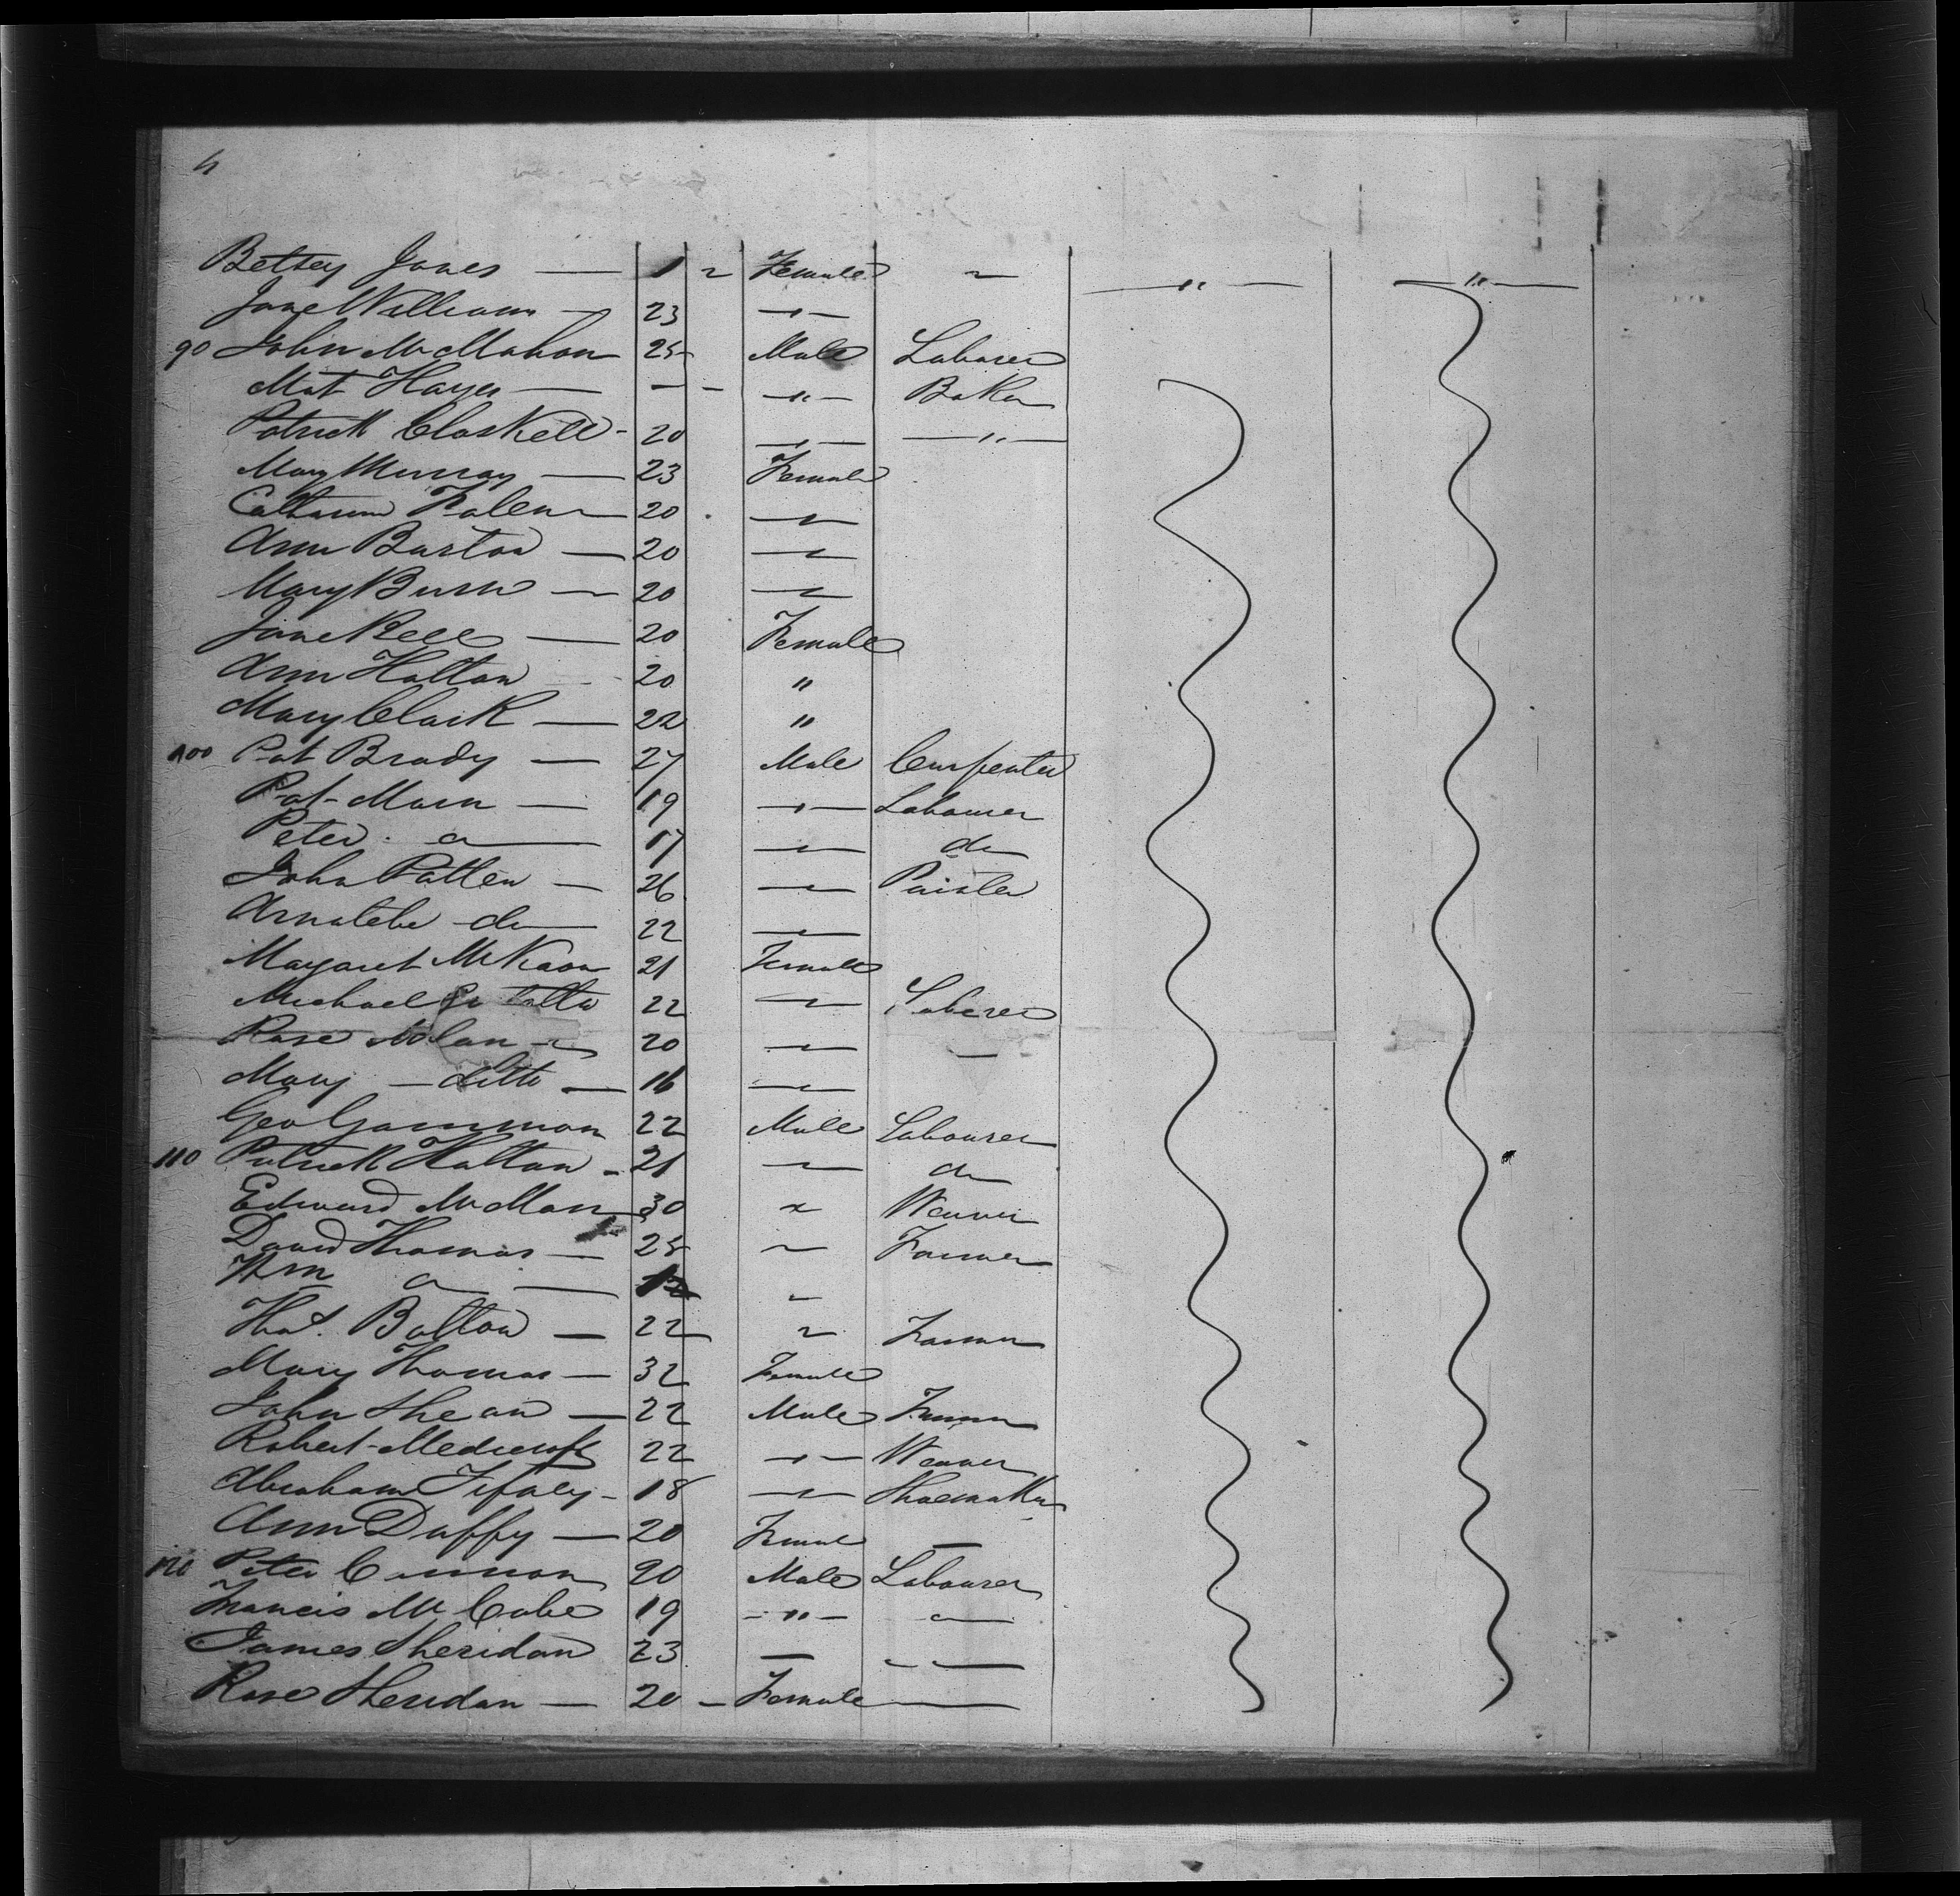 4
Betsey Jones — 1 " Female "
Jane Williams — 23 — " —
90 John McMahon 25 Male Labourer
Mat Hayes — — — — " — Baker
Patrick Claskell - 20 — " — — " —
Mary Murray — 23 Female
Catharine 20 — " —
Ann Burton — 20 — " —
Mary Burn — 20 — " —
Jane Bell — 20 Female
Ann Hatton 20 "
Mary Clark — 22 "
100 Pat Brady — 27 Male Carpenter
Pat — 19 — " — Labourer
Peter do — 17 — " — do
John Patten — 26 — " — Painter
do — 22 — " —
Margaret McKeon 21 Female
Michael 22 — " — Laborer
Rose Nolan — 20 — " — —
Mary — ditto — 16 — " —
Geo Gammon 22 Male Labourer
110 Patrick Hattan - 21 — " — do
Edward 30 " Weaver
David Thomas — 25 " Farmer
Wm do — "
Thos. Bolton — 22 " Farmer
Mary Thomas — 32 Female
John Shean — 22 Male Farmer
Robert Medcroft 22 — " — Weaver
Abraham - 18 — " — Shoemaker
Ann Duffy — 20 Female —
120 Peter Cannon 20 Male Labourer
Francis McCabe 19 - " - — " —
James Sheridan 23 — — —
Rose Sheridan — 20 — Female —